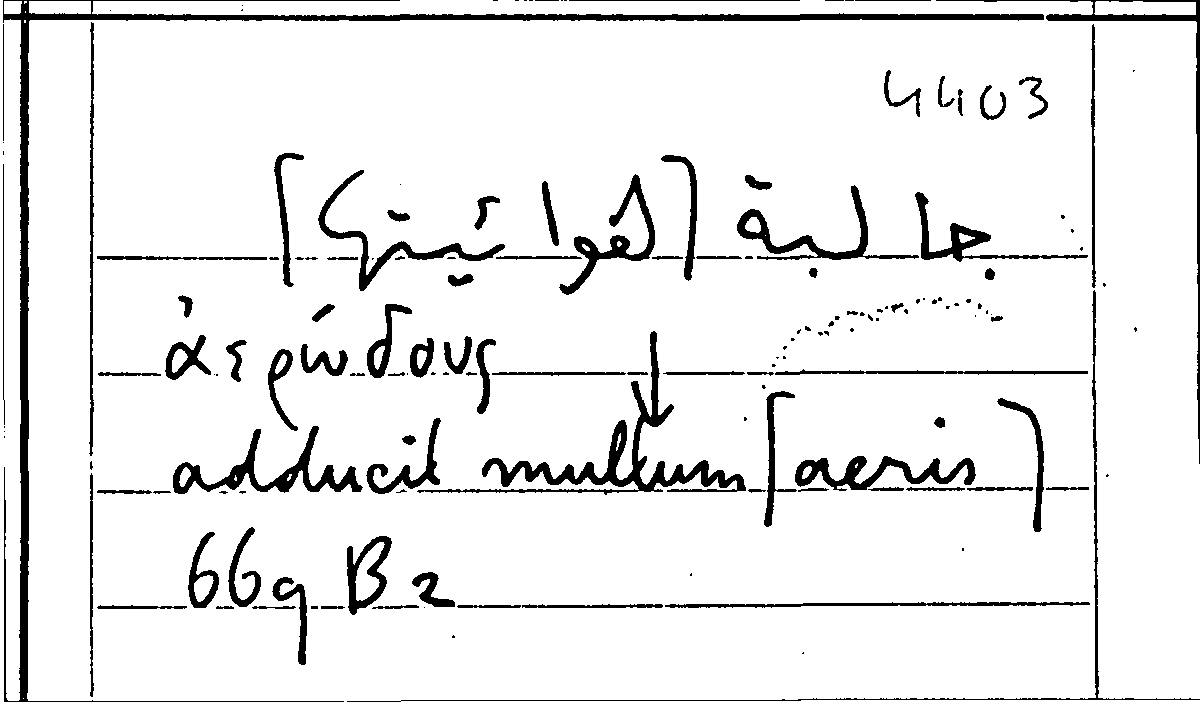 4403
جالبة [لهوائيتها]
ἀερώδους
adducit multum [aeris]
669 B 2